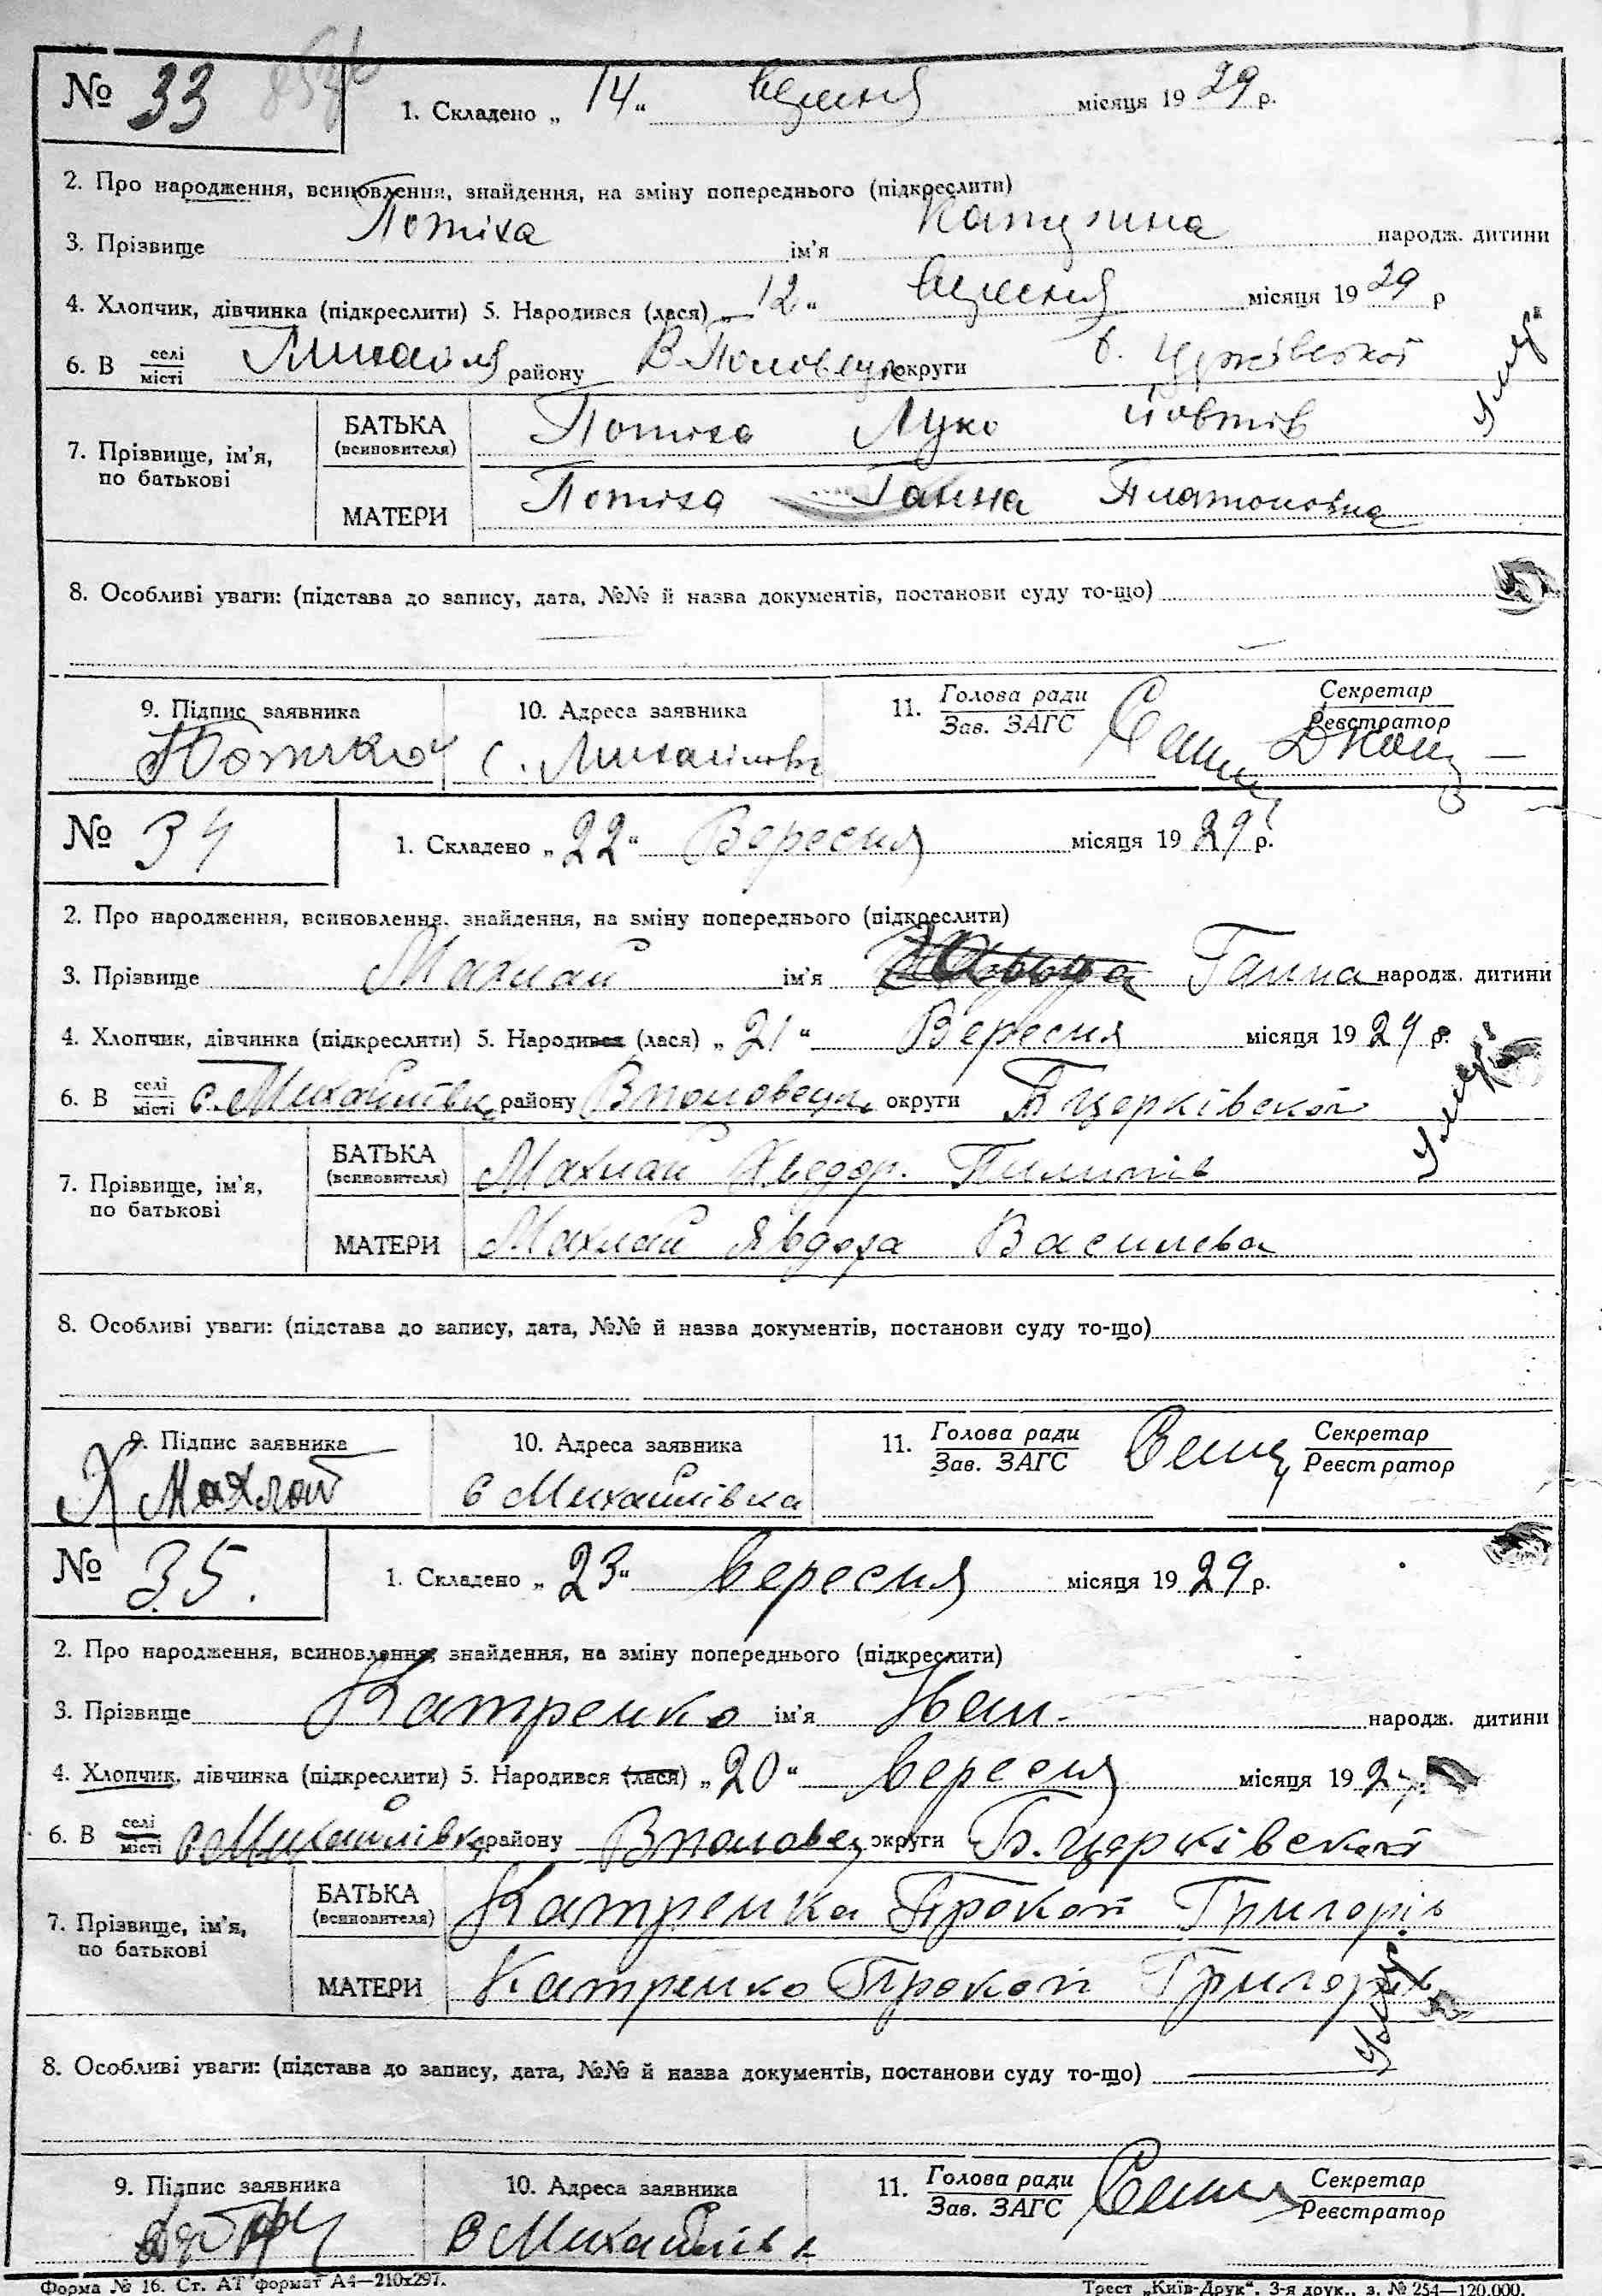 № 33
1. Складено „ 14 “ вересня місяця 19 29 р.
2. Про народження, всиновлення, знайдення, на зміну попереднього (підкреслити)
3. Прізвище Потіха ім'я Катерина народж. дитини
4. Хлопчик, дівчинка (підкреслити) 5. Народився (лася) „ 12 “ вересня місяця 19 29 р
6. В селі місті району В.Половец округи б. Церківської
7. Прізвище, ім'я, по батькові
БАТЬКА (всиновителя) Потіха Луко Йовтів
МАТЕРИ Потіха Ганна Платоновна
Умер
8. Особливі уваги: (підстава до запису, дата, №№ й назва документів, постанови суду то-що)
9. Підпис заявника
10. Адреса заявника с. Михайлівк
11. Голова ради Зав. ЗАГС Секретар Реєстратор
№ 34
1. Складено „ 22 “ Вересня місяця 19 29 р.
2. Про народження, всиновлення, знайдення, на зміну попереднього (підкреслити)
3. Прізвище Махлай ім'я Ганна народж. дитини
4. Хлопчик, дівчинка (підкреслити) 5. Народився (лася) „ 21 “ Вересня місяця 19 29 р.
6. В селі місті с. Михайлівк району Вполовецк округи Б церківской
7. Прізвище, ім'я, по батькові
БАТЬКА (всиновителя) Махлай Хведор. Пилипів
МАТЕРИ Махлай Явдоха Василева
Умер
8. Особливі уваги: (підстава до запису, дата, №№ й назва документів, постанови суду то-що)
9. Підпис заявника Х Махлай
10. Адреса заявника с Михайлівка
11. Голова ради Зав. ЗАГС Секретар Реєстратор
№ 35.
1. Складено „ 23 “ вересня місяця 19 29 р.
2. Про народження, всиновлення, знайдення, на зміну попереднього (підкреслити)
3. Прізвище Катренко ім'я Іван народж. дитини
4. Хлопчик, дівчинка (підкреслити) 5. Народився (лася) „ 20 “ вересня місяця 19 2
6. В селі місті с Михайлівка району Вполовец округи Б. церківской
7. Прізвище, ім'я, по батькові
БАТЬКА (всиновителя) Катренка Прокоп Григорів
МАТЕРИ Катренко Прокоп Григорів
Умер
8. Особливі уваги: (підстава до запису, дата, №№ й назва документів, постанови суду то-що)
9. Підпис заявника
10. Адреса заявника с Михайлівк
11. Голова ради Зав. ЗАГС Секретар Реєстратор
Форма № 16. Ст. АТ формат А4—210х297.
Трест „Київ-Друк“. 3-я друк., з. № 254—120.000.